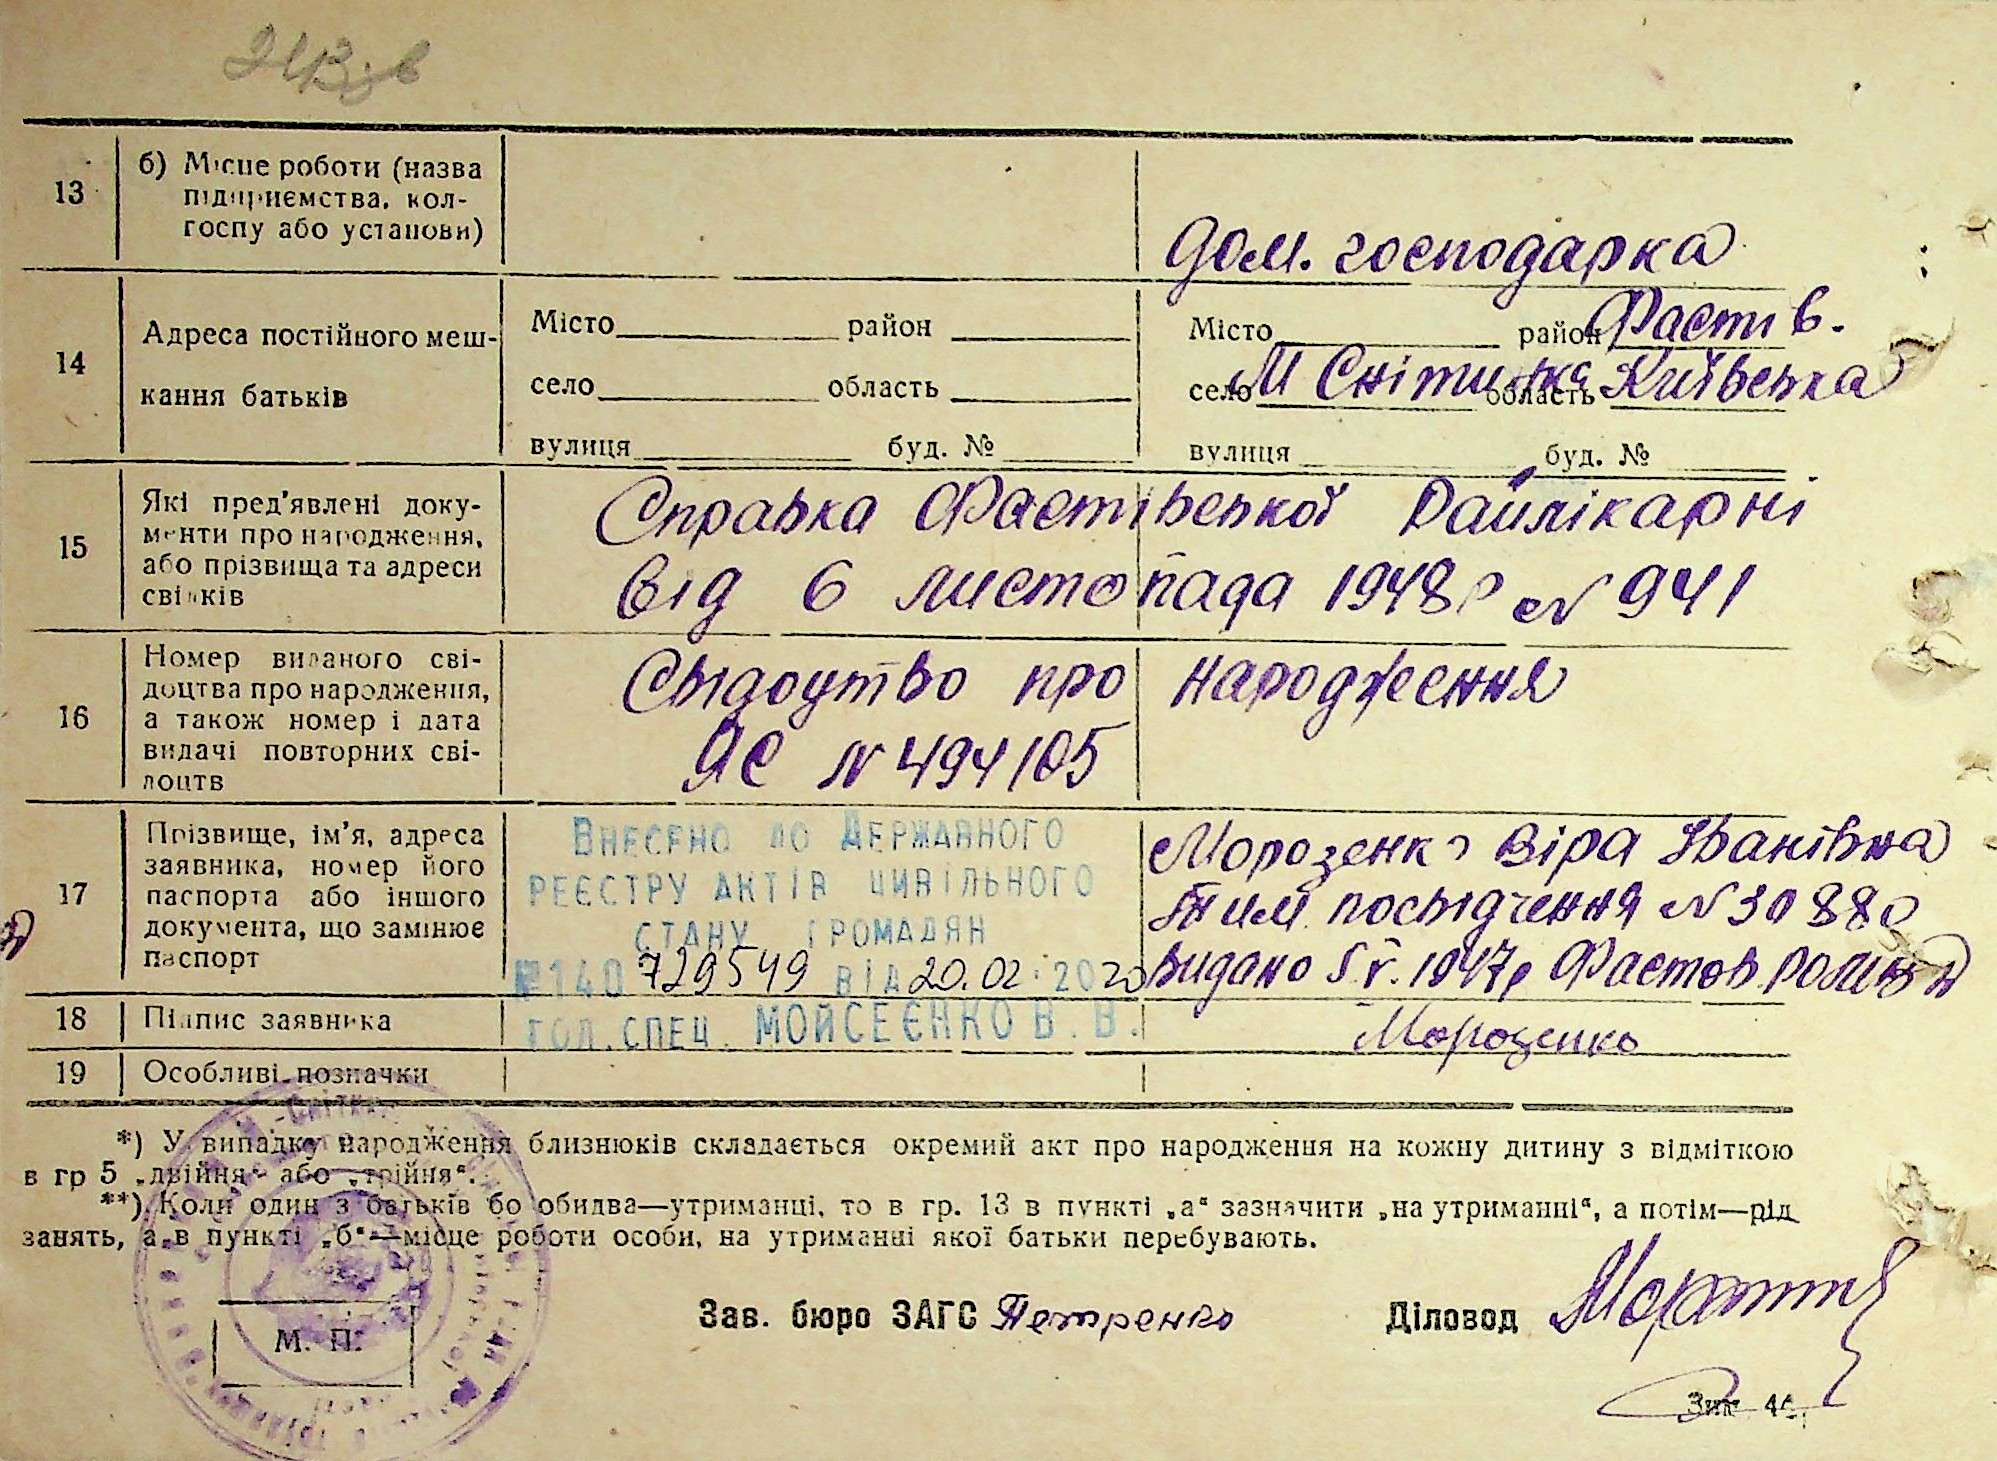 13
б) Місце роботи (назва
підприємства, кол-
госпу або установи)
дом. господарка
14
Адреса постійного меш-
кання батьків
Місто район
село область
вулиця буд. №
Місто район Фастів.
село М Снітинка область Київська
вулиця буд. №
15
Які пред'явлені доку-
менти про народження,
або прізвища та адреси
свідків
Справка Фастівської Райлікарні
від 6 листопада 1948р № 941
16
Номер виданого сві-
доцтва про народження,
а також номер і дата
видачі повторних сві-
доцтв
Свідоцтво про народження
ЯС № 494105
17
Прізвище, ім'я, адреса
заявника, номер його
паспорта або іншого
документа, що замінює
паспорт
Внесено до Державного
реєстру актів цивільного
стану громадян
№140 729549 від 20.02.2020
гол. спец. Мойсеєнко В. В.
Морозенко Віра Іванівна
Тим посвідчення № 30880
видано 5 V. 1947р Фастов.
18
Підпис заявника
Морозенко
19
Особливі позначки
*) У випадку народження близнюків складається окремий акт про народження на кожну дитину з відміткою
в гр 5 „двійня“ або „трійня“.
**) Коли один з батьків бо обидва—утриманці, то в гр. 13 в пункті „а“ зазначити „на утриманні“, а потім—рід
занять, а в пункті „б“—місце роботи особи, на утриманні якої батьки перебувають.
Зав. бюро ЗАГС Петренко
Діловод
М. П.